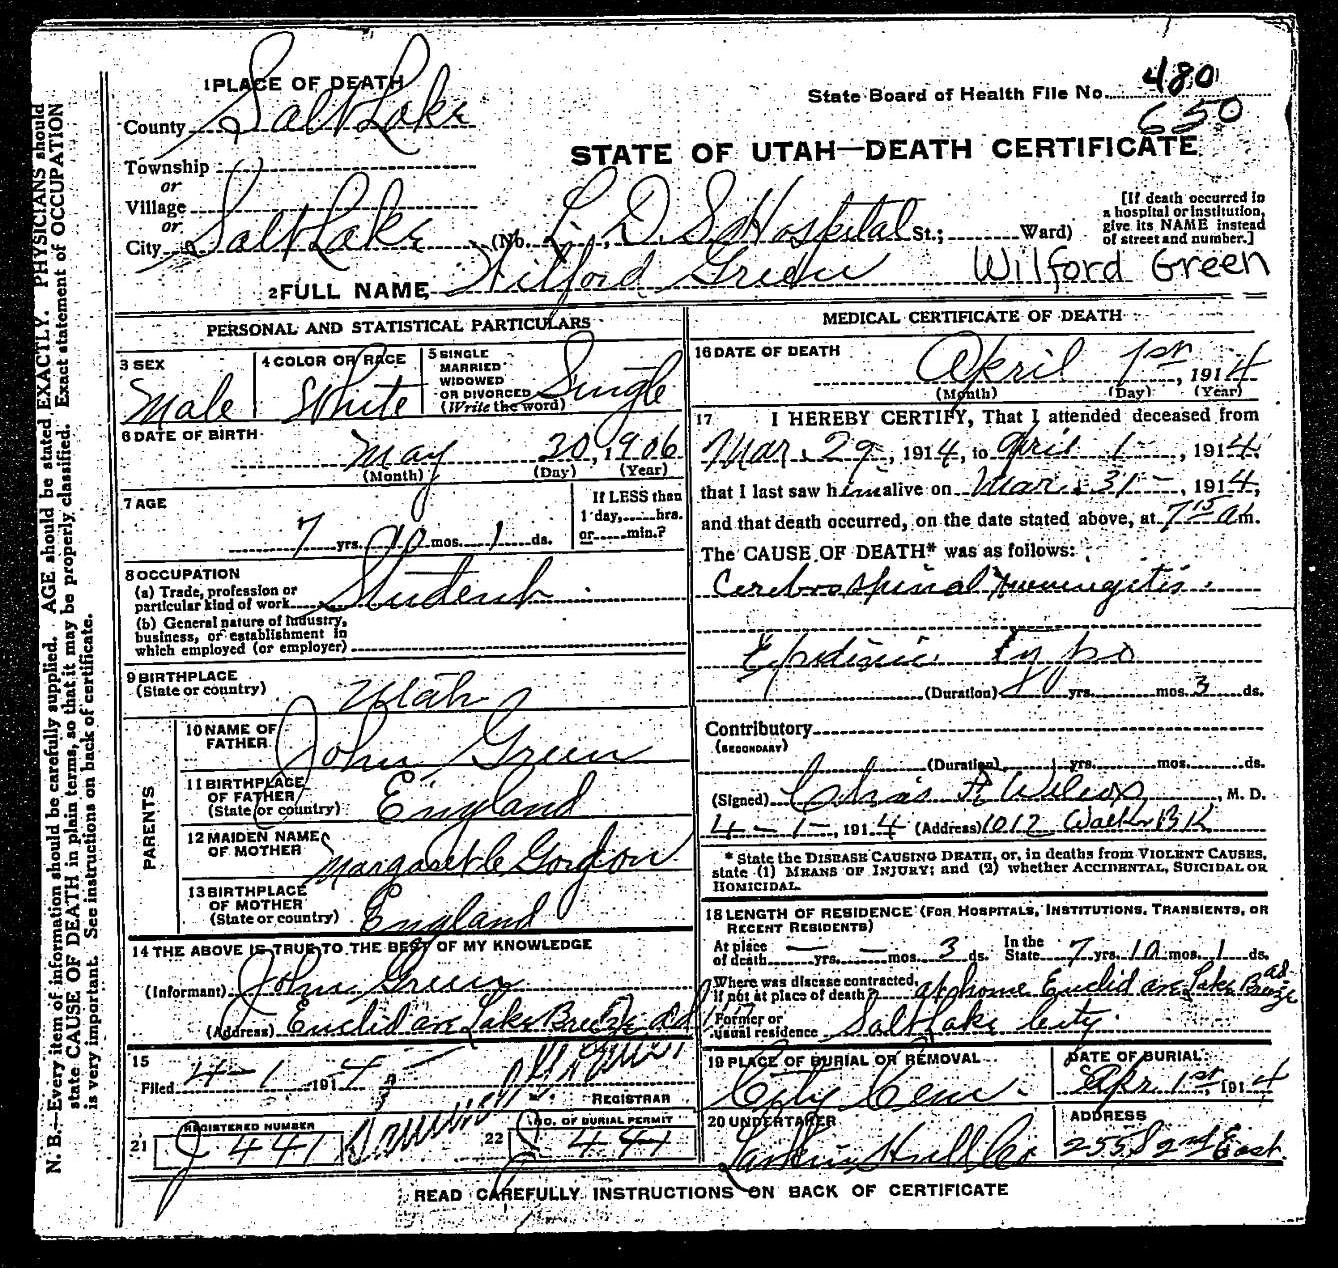 1 PLACE OF DEATH
480
State Board of Health File No.
650
County Salt Lake
STATE OF UTAH—DEATH CERTIFICATE
Township
or
Village
or
City Salt Lake (No. L. D. S. Hospital St.; Ward)
[If death occurred in
a hospital or institution,
give its NAME instead
of street and number.]
2 FULL NAME Wilford Green Wilford Green
PERSONAL AND STATISTICAL PARTICULARS
3 SEX
Male
4 COLOR OR RACE
White
5 SINGLE
MARRIED
WIDOWED
OR DIVORCED
(Write the word)
Single
6 DATE OF BIRTH
May 20, 1906
(Month) (Day) (Year)
7 AGE
7 yrs. 10 mos. 1 ds.
If LESS than
1 day, hrs.
or min.?
8 OCCUPATION
(a) Trade, profession or
particular kind of work Student
(b) General nature of industry,
business, or establishment in
which employed (or employer)
9 BIRTHPLACE
(State or country) Utah
PARENTS
10 NAME OF
FATHER John Green
11 BIRTHPLACE
OF FATHER
(State or country) England
12 MAIDEN NAME
OF MOTHER Margaret Gordon
13 BIRTHPLACE
OF MOTHER
(State or country) England
14 THE ABOVE IS TRUE TO THE BEST OF MY KNOWLEDGE
(Informant) John Green
(Address) Euclid ave Lake Breeze ad
15
Filed 4-1- 1914
REGISTRAR
21 REGISTERED NUMBER
J 441
22 NO. OF BURIAL PERMIT
J 441
MEDICAL CERTIFICATE OF DEATH
16 DATE OF DEATH
April 1st, 1914
(Month) (Day) (Year)
17 I HEREBY CERTIFY, That I attended deceased from
Mar. 29, 1914, to April 1-, 1914,
that I last saw him alive on Mar. 31-, 1914,
and that death occurred, on the date stated above, at 7 15 a m.
The CAUSE OF DEATH* was as follows:
Cerebrospinal meningitis.
Epidemic Type
(Duration) yrs. mos. 3 ds.
Contributory
(SECONDARY)
(Duration) yrs. mos. ds.
(Signed) Chas R Wilcox, M. D.
4-1-, 1914 (Address) 1012 Walker BK
* State the DISEASE CAUSING DEATH, or, in deaths from VIOLENT CAUSES,
state (1) MEANS OF INJURY; and (2) whether ACCIDENTAL, SUICIDAL OR
HOMICIDAL.
18 LENGTH OF RESIDENCE (FOR HOSPITALS, INSTITUTIONS, TRANSIENTS, OR
RECENT RESIDENTS)
At place
of death — yrs. — mos. 3 ds.
In the
State 7 yrs. 10 mos. 1 ds.
Where was disease contracted,
if not at place of death? at home Euclid ave Lake Breeze ad-
Former or
usual residence Salt Lake City.
19 PLACE OF BURIAL OR REMOVAL
City Cem.
DATE OF BURIAL
Apr 1st, 1914
20 UNDERTAKER
Larkin Hull Co
ADDRESS
255 S 2nd East
READ CAREFULLY INSTRUCTIONS ON BACK OF CERTIFICATE
N. B.—Every item of information should be carefully supplied. AGE should be stated EXACTLY. PHYSICIANS should
state CAUSE OF DEATH in plain terms, so that it may be properly classified. Exact statement of OCCUPATION
is very important. See instructions on back of certificate.